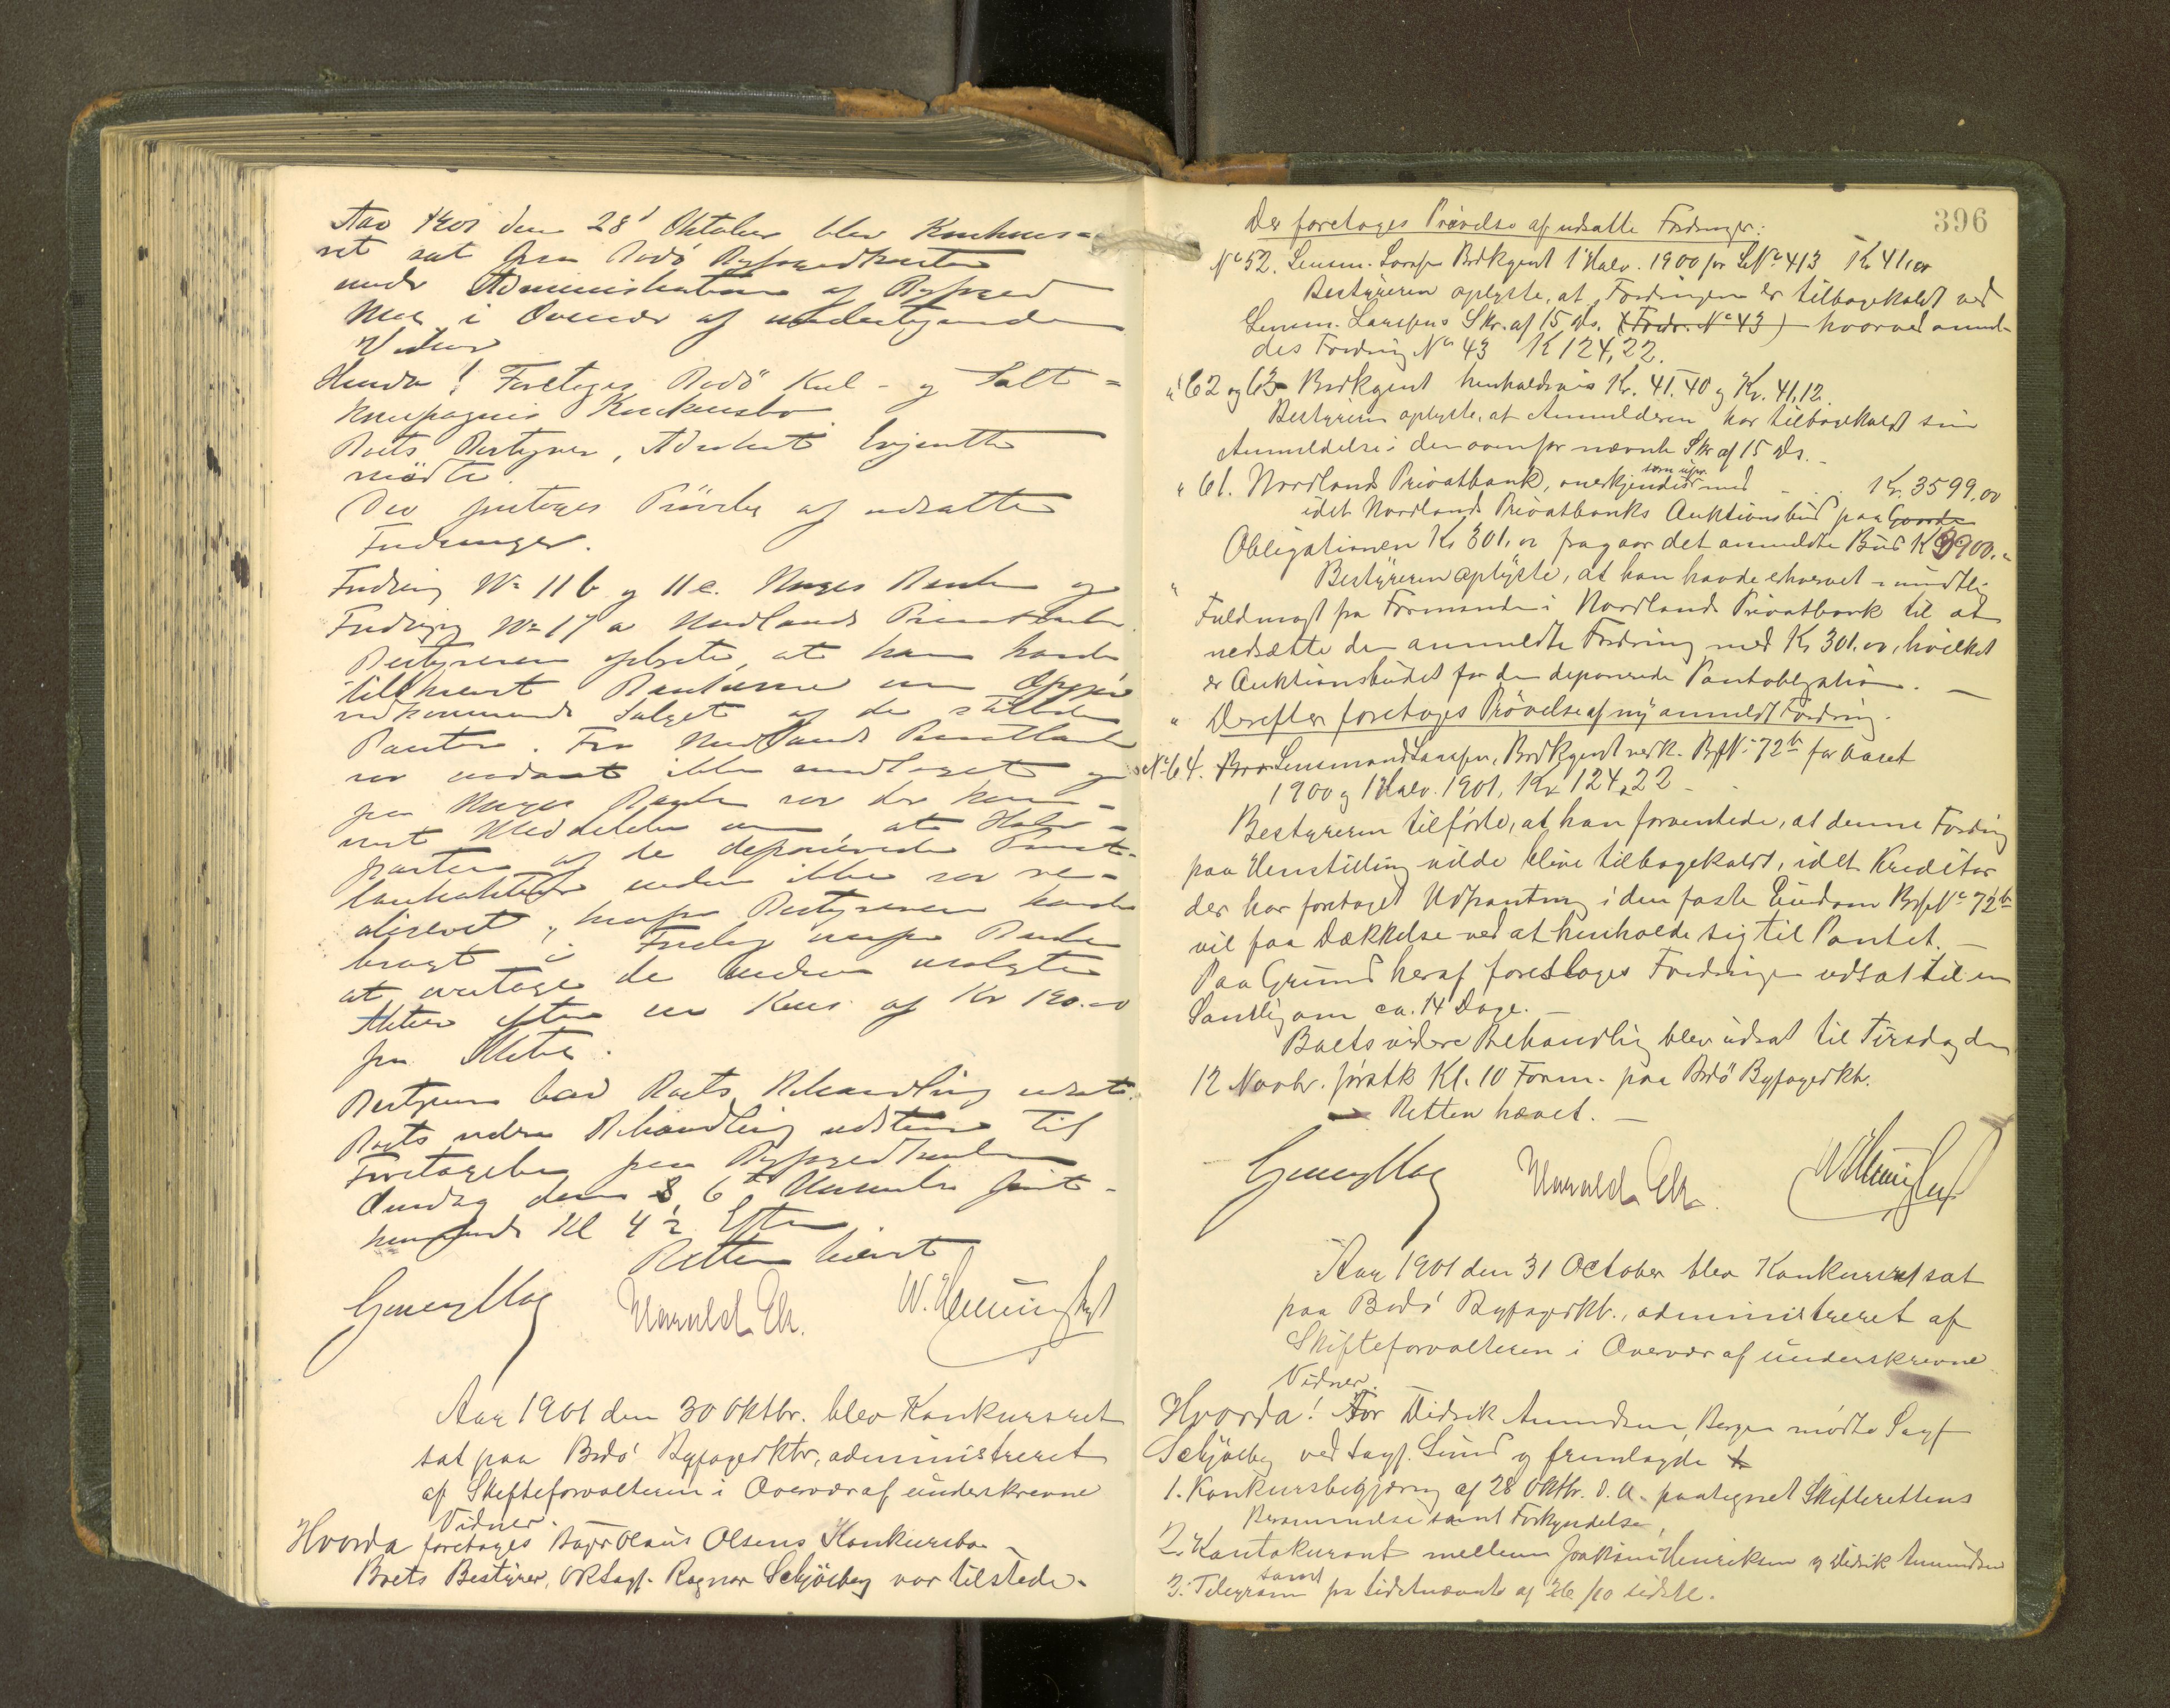 Aar 1901 den 28' Oktober blev Konkurs-
ret sat paa Bodö Byfogedkontor
under Administration af Byfoged
Moe i Overvær af undertegnede
Vidner
Hvorda! Foretoges Bodö Kul- og Salt-
kompagnis Konkursbo.
Boets Bestyrer, Advokat Evjenth
mödte.
Der foretoges Prövelse af udsatte
Fordringer.
Fordring No 11 b og 11 c. Norges Bank og
Fordring No 17 a Nordlands Privatbank.
Bestyreren oplyste, at han havde
tilskrevet Bankerne om Opgjör
vedkommende Salget af de stillede
Panter. Fra Nordlands Privatbank
var endnu ikke modtaget
fra Norges Bank var der kom-
met Meddelelse om, at Halv-
parten af de deponerede Privat-
bankaktier endnu ikke var re-
aliseret, hvorfor Bestyreren havde
bragt i Forslag
at overtage de endnu usolgte
Aktier efter en Kurs af Kr 120.00
pr. Aktie.
Bestyreren bad Boets Behandling udsat.
Boets videre Behandling udstaar til
Foretagelse paa Byfogedkontoret
Onsdag den 6te November först-
kommende Kl 4½ Efterm.
Retten hævet
Harald Ek.
Aar 1901 den 30 Oktbr. blev Konkursret
sat paa Bodö Byfogedktr, administreret
af Skifteforvalteren i Overvær af underskrevne
Vidner.
Hvorda foretoges Bager Olaus Olsens Konkursbo.
Boets Bestyrer, ORsagf. Ragnar Schjölberg var tilstede.
396
Der foretoges Prövelse af udsatte Fordringer:
No 52. Lensm. Larssen Brdkgent 1 Halv. 1900 for LNo 413 Kr 41,00
Bestyreren oplyste, at Fordringen er tilbagekaldt ved
Lensm. Larssens Skr. af 15 ds. (Fordr. No 43) hvorved anmel-
des Fordring No 43 Kr 124,22.
" 62 og 63 Brdkgent henholdsvis Kr. 41.40 og Kr. 41,12.
Bestyreren oplyste, at Anmelderen har tilbagekaldt sin
Anmeldelse i den ovenfor nævnte Skr af 15 ds.
" 61. Nordlands Privatbank, anerkjendes som upr. med . . . Kr. 3599,00
idet Nordlands Privatbanks Auktionsbud paa
Obligationen Kr 301,00 fragaar det anmeldte Bud Kr 3900.
" Bestyreren oplyste, at han havde erhvervet mundtlig
Fuldmagt fra Formanden i Nordlands Privatbank til at
nedsætte den anmeldte Fordring med Kr 301.00, hvilket
er Auktionsbudet for den deponerede Pantobligation.
" Derefter foretoges Prövelse af ny anmeldt Fordring.
No 64. Lensmand Larssen, Brdkgent vedk. No 72b for Aaret
1900 og 1 Halv. 1901, Kr 124,22
Bestyreren tilförte, at han forventede, at denne Fordring
paa Henstilling vilde blive tilbagekaldt, idet Kreditor
der har foretaget Udpantning i den faste Eiendom No 72b
vil faa Dækkelse ved at henholde sig til Pantet.
Paa Grund heraf foretoges Fordringen udsat til en
Samling om ca. 14 Dage.
Boets videre Behandling blev udsat til Tirsdag den
12 Novbr. förstk Kl. 10 Form. paa Bodö Byfogedktr.
Retten hævet.
Harald Ek.
Aar 1901 den 31 October blev Konkursret sat
paa Bodö Byfogedktr., administreret af
Skifteforvalteren i Overvær af underskrevne
Vidner.
Hvorda! For Didrik Amundsen, Bergen mödte Sagf
Schjölberg ved Sagf. Lund og fremlagde
1. Konkursbegjæring af 28 Oktbr. d. A. paategnet Skifterettens
Berammelse samt Forkyndelse,
2. Kontokurant mellem Joakim Henriksen og Didrik Amundsen
samt
3. Telegram fra sidstnævnte af 26/10 sidstl.